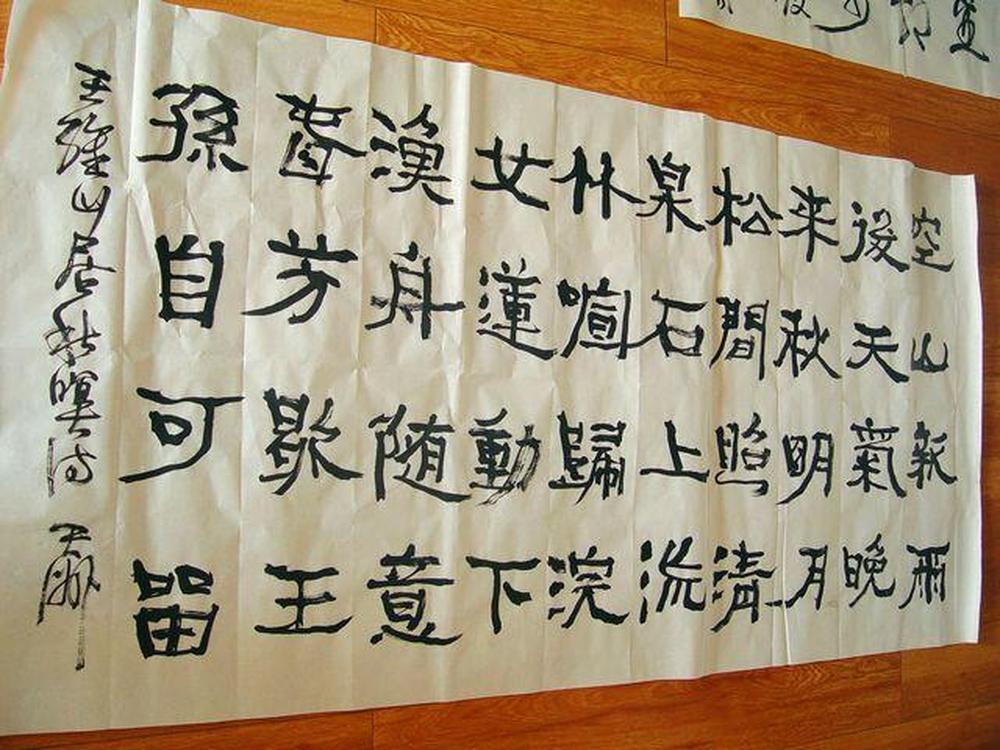 空山新雨
後天氣晚
来秋明月
松間照清
泉石上流
林喧歸浣
女蓮動下
漁舟随意
春芳歇王
孫自可留
王維山居秋暝詩